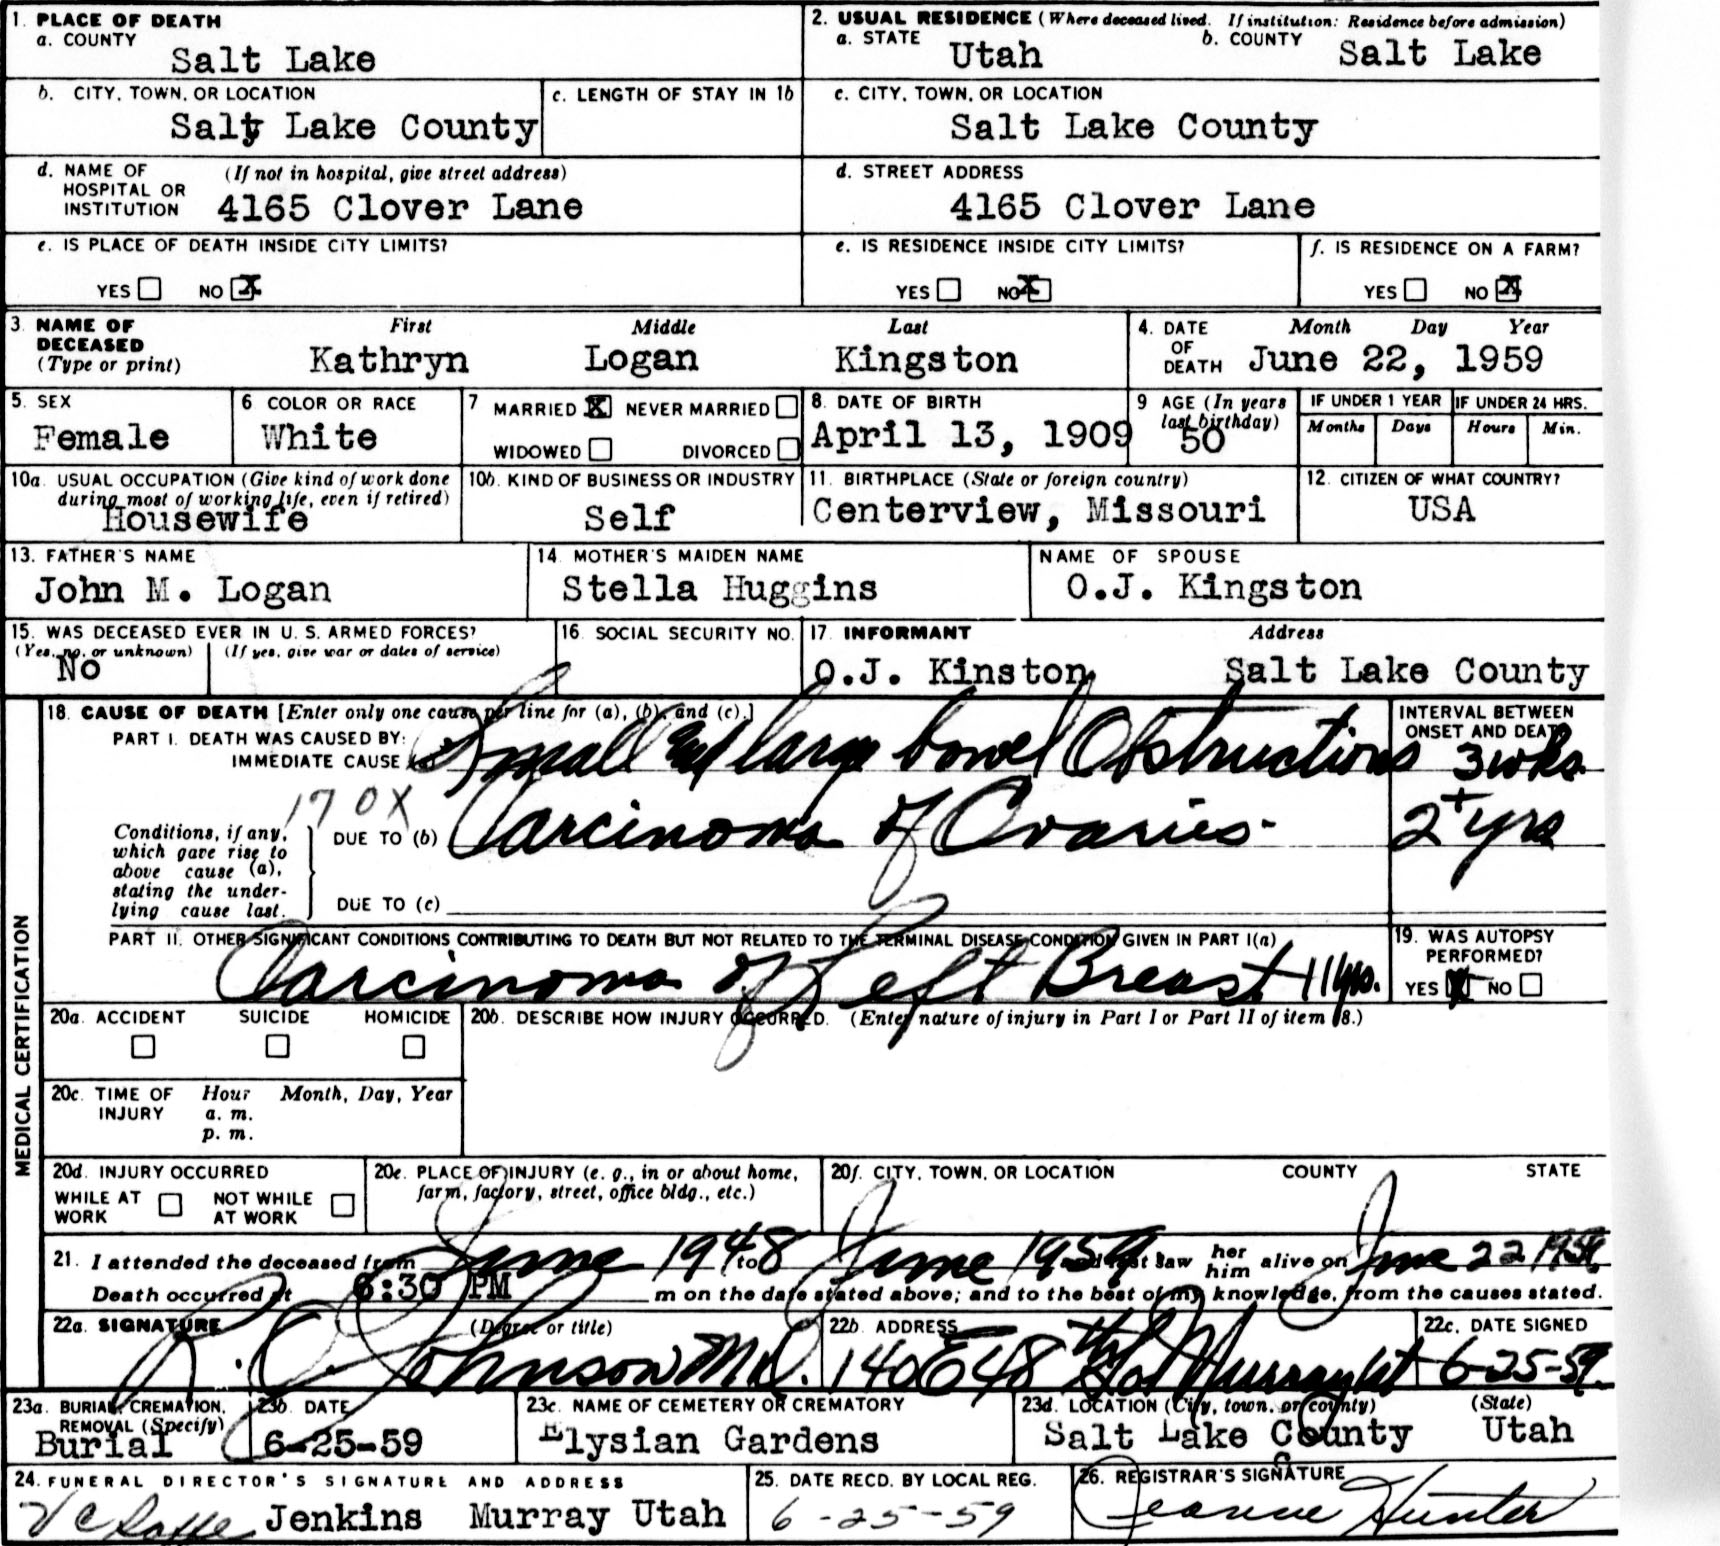 1. PLACE OF DEATH
a. COUNTY
Salt Lake
2. USUAL RESIDENCE (Where deceased lived. If institution: Residence before admission)
a. STATE Utah b. COUNTY Salt Lake
b. CITY, TOWN, OR LOCATION
Salt Lake County
c. LENGTH OF STAY IN 1b
c. CITY, TOWN, OR LOCATION
Salt Lake County
d. NAME OF HOSPITAL OR INSTITUTION (If not in hospital, give street address)
4165 Clover Lane
d. STREET ADDRESS
4165 Clover Lane
e. IS PLACE OF DEATH INSIDE CITY LIMITS?
YES NO X
e. IS RESIDENCE INSIDE CITY LIMITS?
YES NO X
f. IS RESIDENCE ON A FARM?
YES NO X
3. NAME OF DECEASED (Type or print)
First Middle Last
Kathryn Logan Kingston
4. DATE OF DEATH Month Day Year
June 22, 1959
5. SEX
Female
6 COLOR OR RACE
White
7 MARRIED X NEVER MARRIED
WIDOWED DIVORCED
8. DATE OF BIRTH
April 13, 1909
9 AGE (In years last birthday)
50
IF UNDER 1 YEAR
Months Days
IF UNDER 24 HRS.
Hours Min.
10a. USUAL OCCUPATION (Give kind of work done during most of working life, even if retired)
Housewife
10b. KIND OF BUSINESS OR INDUSTRY
Self
11. BIRTHPLACE (State or foreign country)
Centerview, Missouri
12. CITIZEN OF WHAT COUNTRY?
USA
13. FATHER'S NAME
John M. Logan
14. MOTHER'S MAIDEN NAME
Stella Huggins
NAME OF SPOUSE
O.J. Kingston
15. WAS DECEASED EVER IN U. S. ARMED FORCES?
(Yes, no, or unknown) (If yes, give war or dates of service)
No
16. SOCIAL SECURITY NO.
17. INFORMANT Address
O.J. Kinston Salt Lake County
MEDICAL CERTIFICATION
18. CAUSE OF DEATH [Enter only one cause per line for (a), (b), and (c).]
PART I. DEATH WAS CAUSED BY:
IMMEDIATE CAUSE (a) Small and large bowel Obstructions
INTERVAL BETWEEN ONSET AND DEATH
3 wks.
170X
Conditions, if any, which gave rise to above cause (a), stating the underlying cause last.
DUE TO (b) Carcinoma of Ovaries
2+ yrs
DUE TO (c)
PART II. OTHER SIGNIFICANT CONDITIONS CONTRIBUTING TO DEATH BUT NOT RELATED TO THE TERMINAL DISEASE CONDITION GIVEN IN PART I(a)
Carcinoma of Left Breast 11 yrs.
19. WAS AUTOPSY PERFORMED?
YES X NO
20a. ACCIDENT SUICIDE HOMICIDE
20b. DESCRIBE HOW INJURY OCCURRED. (Enter nature of injury in Part I or Part II of item 18.)
20c. TIME OF INJURY Hour Month, Day, Year
a. m.
p. m.
20d. INJURY OCCURRED
WHILE AT WORK NOT WHILE AT WORK
20e. PLACE OF INJURY (e. g., in or about home, farm, factory, street, office bldg., etc.)
20f. CITY, TOWN, OR LOCATION COUNTY STATE
21. I attended the deceased from June 1948 to June 1959 and last saw her him alive on June 22 1959
Death occurred at 6:30 PM m on the date stated above; and to the best of my knowledge, from the causes stated.
22a. SIGNATURE (Degree or title)
R. O. Johnson M.D.
22b. ADDRESS
140 E 48th So Murray Ut
22c. DATE SIGNED
6-25-59
23a. BURIAL, CREMATION, REMOVAL (Specify)
Burial
23b. DATE
6-25-59
23c. NAME OF CEMETERY OR CREMATORY
Elysian Gardens
23d. LOCATION (City, town, or county) (State)
Salt Lake County Utah
24. FUNERAL DIRECTOR'S SIGNATURE AND ADDRESS
Jenkins Murray Utah
25. DATE RECD. BY LOCAL REG.
6-25-59
26. REGISTRAR'S SIGNATURE
Jeanne Hunter